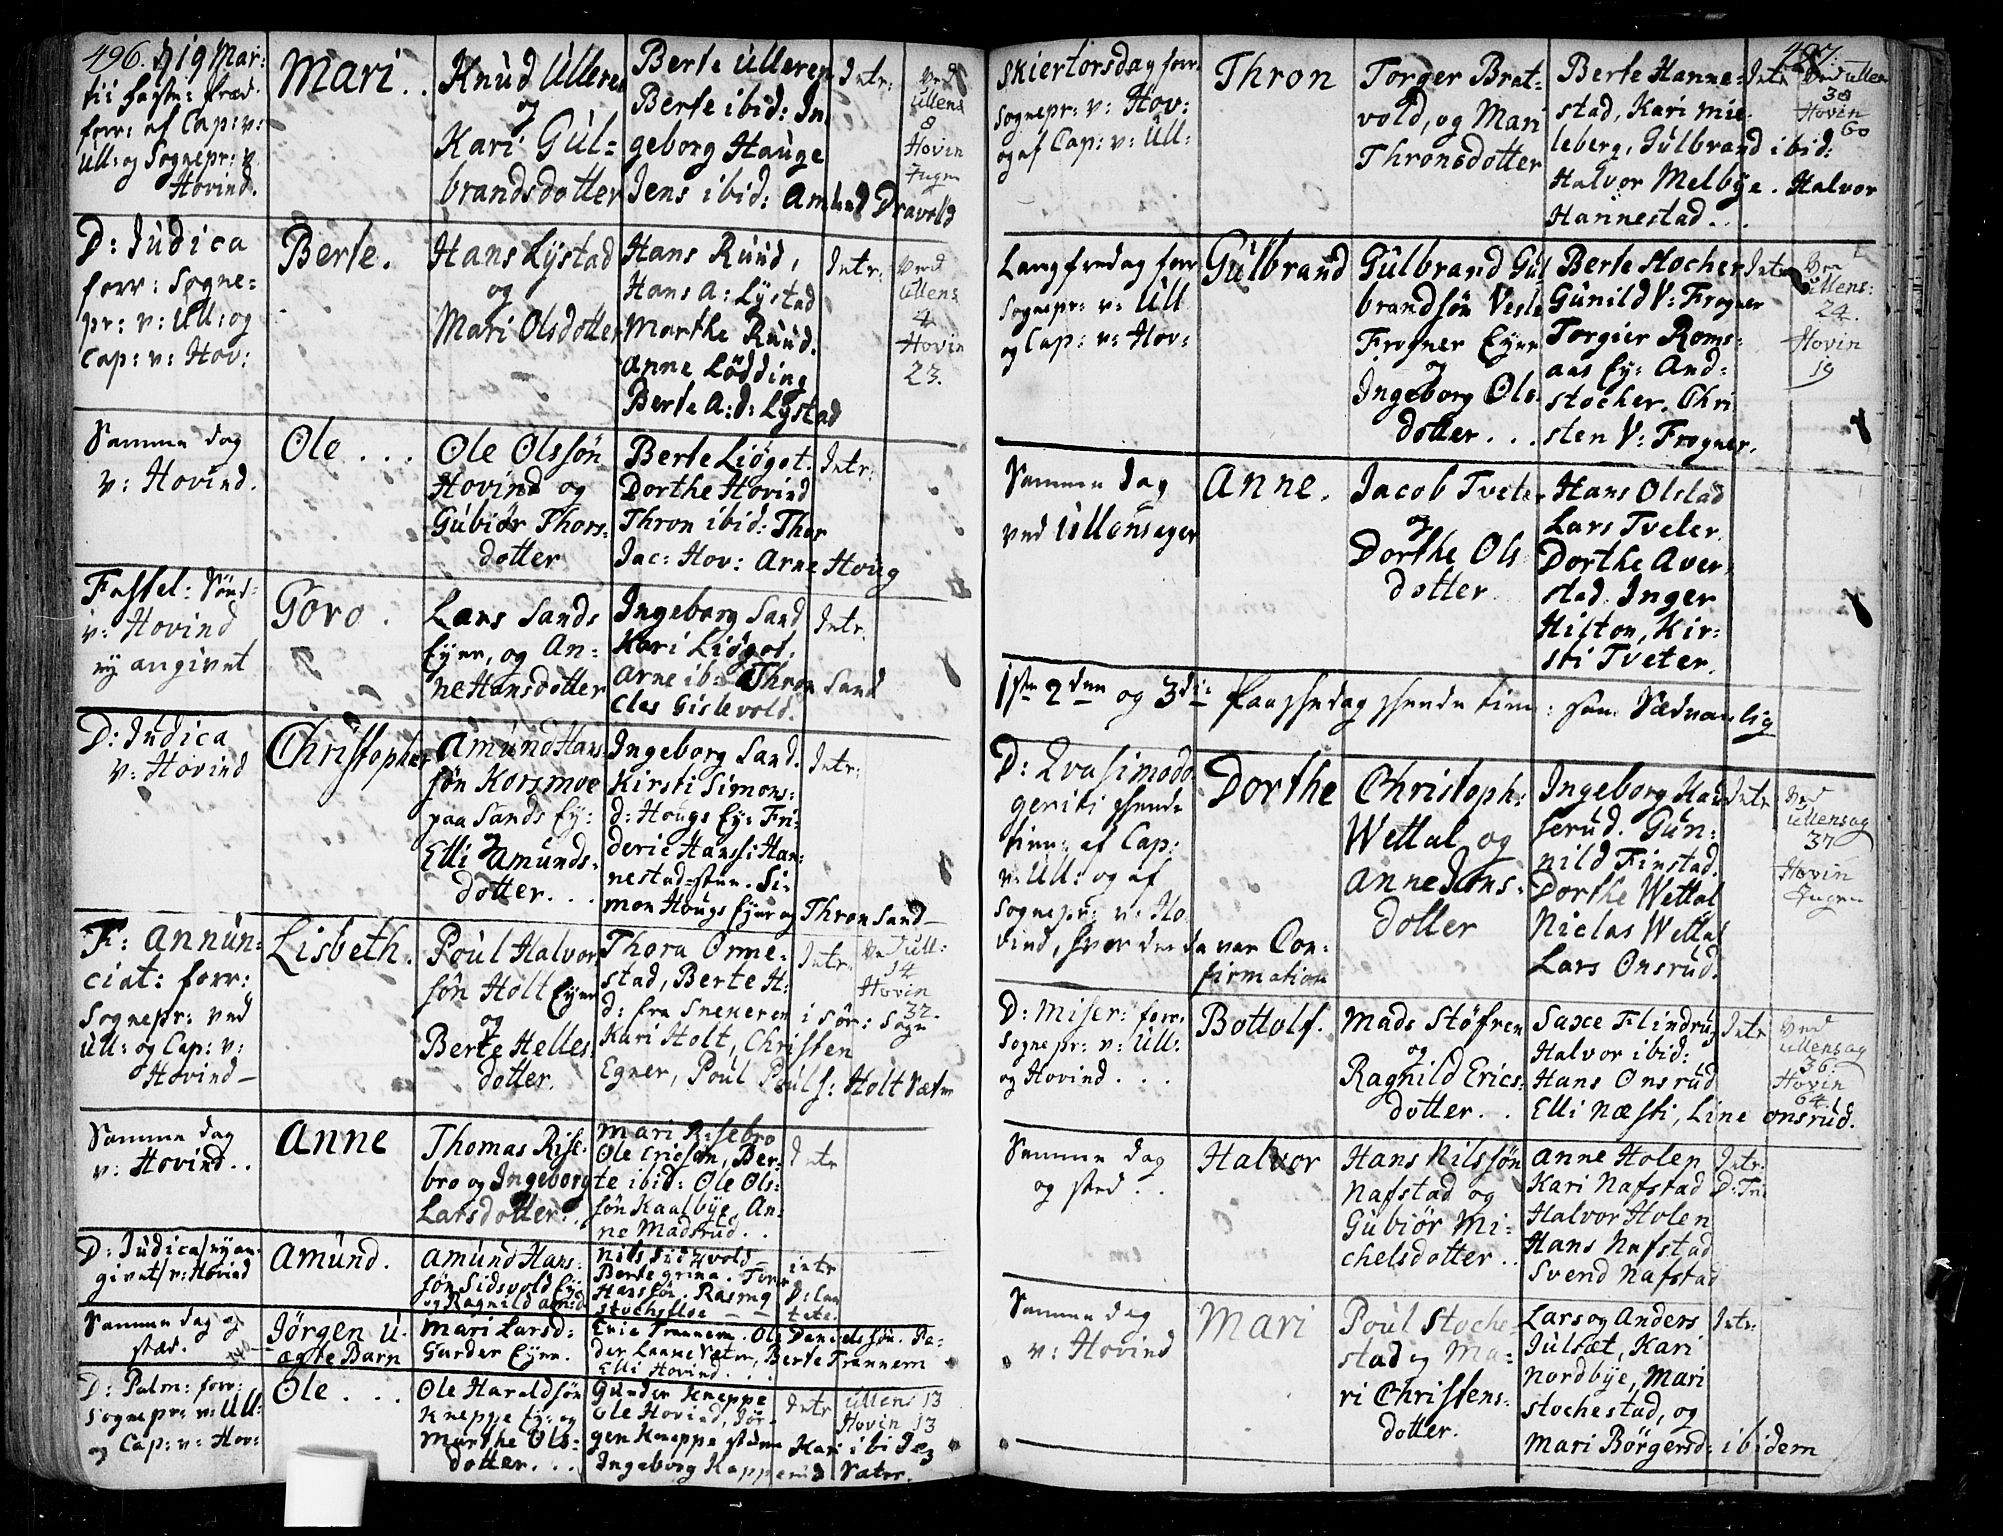 496. D 19 Mar:
tii faste: præd.
forr: af Cap: v:
Ull: og Sognepr: v.
Hovind.
Mari . .
Knud Ulleren
og
Kari Gul=
brandsdotter
Berte Ulleren
Berte ibid: In
geborg Hauge
Jens ibid: Amund Dravold
Intr:
Ved
Ullens
8
Hovin
Ingen
D: Judica
forr: Sogne=
pr: v: Ull: og
Cap: v: Hov:
Berte.
Hans Lystad
og
Mari Olsdotter
Hans Ruud,
Hans A: Lystad
Marthe Ruud.
Anne Lödding
Berte A: d: Lystad
Intr:
Ved
Ullens
4
Hovin
23.
Samme dag
v: Hovind.
Ole . . .
Ole Olssön
Hovind og
Gubiör Thors=
dotter
Berte Liöget.
Dorthe Hovind
Thron ibid: Thor
Jac: Hov: Arne Houg
Intr:
Fastel: Sönd:
v: Hovind
ey angivet
Goro .
Lars Sands
Eyer, og An=
ne Hansdotter
Ingeborg Sand
Kari Liöget.
Arne ib: Thron Sand
Clas Gislevold.
Intr.
D: Judica
v: Hovind
Christopher
Amund Hans
sön Korsmoe
paa Sands Ey:
og
Elli Amunds=
dotter. . .
Ingeborg Sand.
Kirsti Simons=
d: Hougs Ey: Fri=
deric Hanssi Han=
nestad-stuen. Si=
mon Hougs Eyer og Thron Sand
Intr:
F: Annun=
ciat: forr:
Sognepr: ved
Ull: og Cap: v:
Hovind—
Lisbeth.
Poul Halvor
sön Holt Eyer
og
Berte Helles=
dotter.
Thora Orme=
stad, Berte H.
d: fra Snekeren i Sör: Sogn
Kari Holt, Christen
Egner, Poul Pouls: Holt Væter
Intr.
Ved Ull:
14
Hovin
32.
Samme dag
v: Hovind . .
Anne
Thomas Rise=
bro og Ingeborg
Larsdotter.
Mari Risebro
Ole Ericsön, Ber=
te ibid: Ole Ols=
sön Kaalbye, An=
ne Madsrud . .
Intr
D: Judica/ ey an=
givet/ v: Hovind
Amund.
Amund Hans=
sön Sidsvold Ey:
og Ragnild Amd:
Nils Sidsvold
Berte grina. Tver
Hanssön. Rasmus
Stochsfloe —
intr
D: Can
tate.
Samme dag og
sted.
Jörgen u=
ægte Barn
Mari Larsd=
Garder Eyer.
Eric Trannem. Ole Danielssön. Pe=
der Lanne Væter, Berte Trannem
Elli Hovind. . . .
D: Palm: forr:
Sognepr: v: Ull:
og Cap: v: Hov:
Ole . . .
Ole Haraldsön
Kneppe Ey: og
Marthe Ols=
dotter. . .
Gunder Kneppe
Ole Hovind, Jör=
gen Kneppe stuen Kari ibidem
Ingeborg Kapperud Væter.
Intr
Ullens 13
Hovin 13
497.
Skiertorsdag forr.
Sognepr: v: Hov:
og af Cap: v: Ull:
Thron
Torger Brat=
vold, og Mari
Thronsdotter
Berte Hanne=
stad, Kari Mie=
leberg, Gulbrand ibid:
Halvor Melbye. Halvor
Hannestad . . .
Intr
Ved Ullen
38
Hovin
60
Langfredag forr
Sognepr: v: Ull
og Cap: v: Hov:
Gulbrand
Gulbrand Gul
brandsön Vesle
Frogner Eyer
og
Ingeborg Ols=
dotter . . .
Berte Stocher
Gunild V: Frogner
Torgier Roms=
aas Ey: And=
stocher. Chri
sten V: Frogner.
Intr
Ved
Ullens:
24.
Hovin
19
Samme dag
ved Ullensager
Anne.
Jacob Tveter
og
Dorthe Ols
dotter
Hans Olstad
Lars Tveter.
Dorthe Aver=
stad. Inger
Hilton, Kir=
sti Tveter.
1ste 2den og 3die Paaskedag skeede tien: som Sædvanlig
D: Qvasimodo
geniti skeede
tien: af Cap:
v: Ull: og af
Sognepr: v: Ho
vind, hvor der da var Con=
firmation
Dorthe
Christoph:
Wettal og
Anne Jens=
dotter
Ingeborg Hau
serud. Gun=
nild Finstad.
Dorthe Wettal
Niclas Wettal
Lars Onsrud.
Intr
Ved
Ullensag
37
Hovin
Ingen
D: Miser: forr.
Sognepr: v: Ull:
og Hovind . . .
Bottolf.
Mads Stöfren
og
Ragnild Erics=
dotter . .
Saxe Flindrug
Halvor ibid:
Hans Onsrud
Elli Næsti, Line Onsrud.
Intr
Ved
Ullensag
36.
Hovin
64.
Samme dag
og sted . .
Halvor
Hans Nilssön
Nafstad og
Gubiör Mi=
chelsdotter . .
Anne Holen
Kari Nafstad
Halvor Holen
Hans Nafstad
Svend Nafstad
Intr:
D: Tri
Samme dag
v: Hovind
Mari
Poul Stoche=
stad og Ma=
ri Christens=
dotter.
Lars og Anders
Julsæt, Kari
Nordbye, Mari
Stochestad, og
Mari Börgersd: ibidem
Intr: